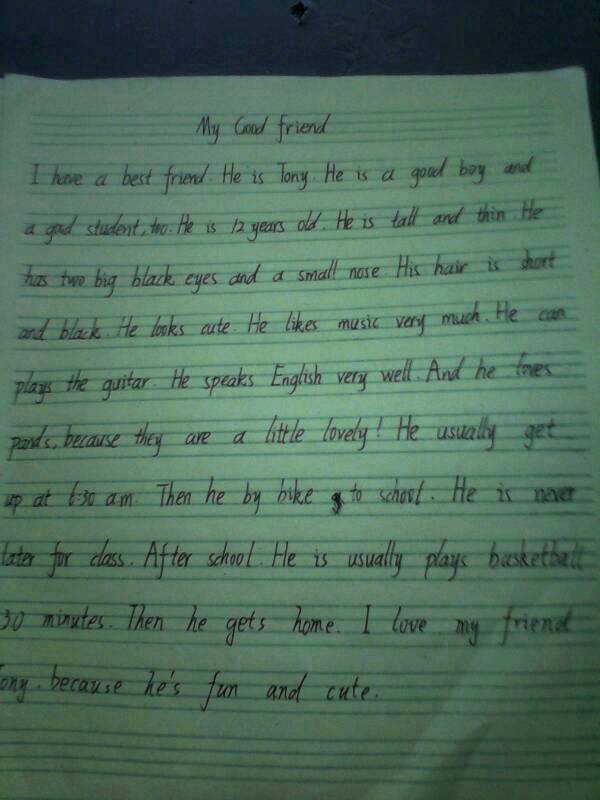 My Good friend
I have a best friend. He is Tony. He is a good boy and
a good student, too. He is 12 years old. He is tall and thin He
has two big black eyes and a small nose His hair is short
and black. He looks cute. He likes music very much. He can
plays the guitar. He speaks English very well. And he loves
pands, because they are a little lovely! He usually get
up at 6:30 a.m. Then he by bike to school. He is never
later for class. After school. He is usually plays basketball
30 minutes. Then he gets home. I love my friend
Tony. because he's fun and cute.